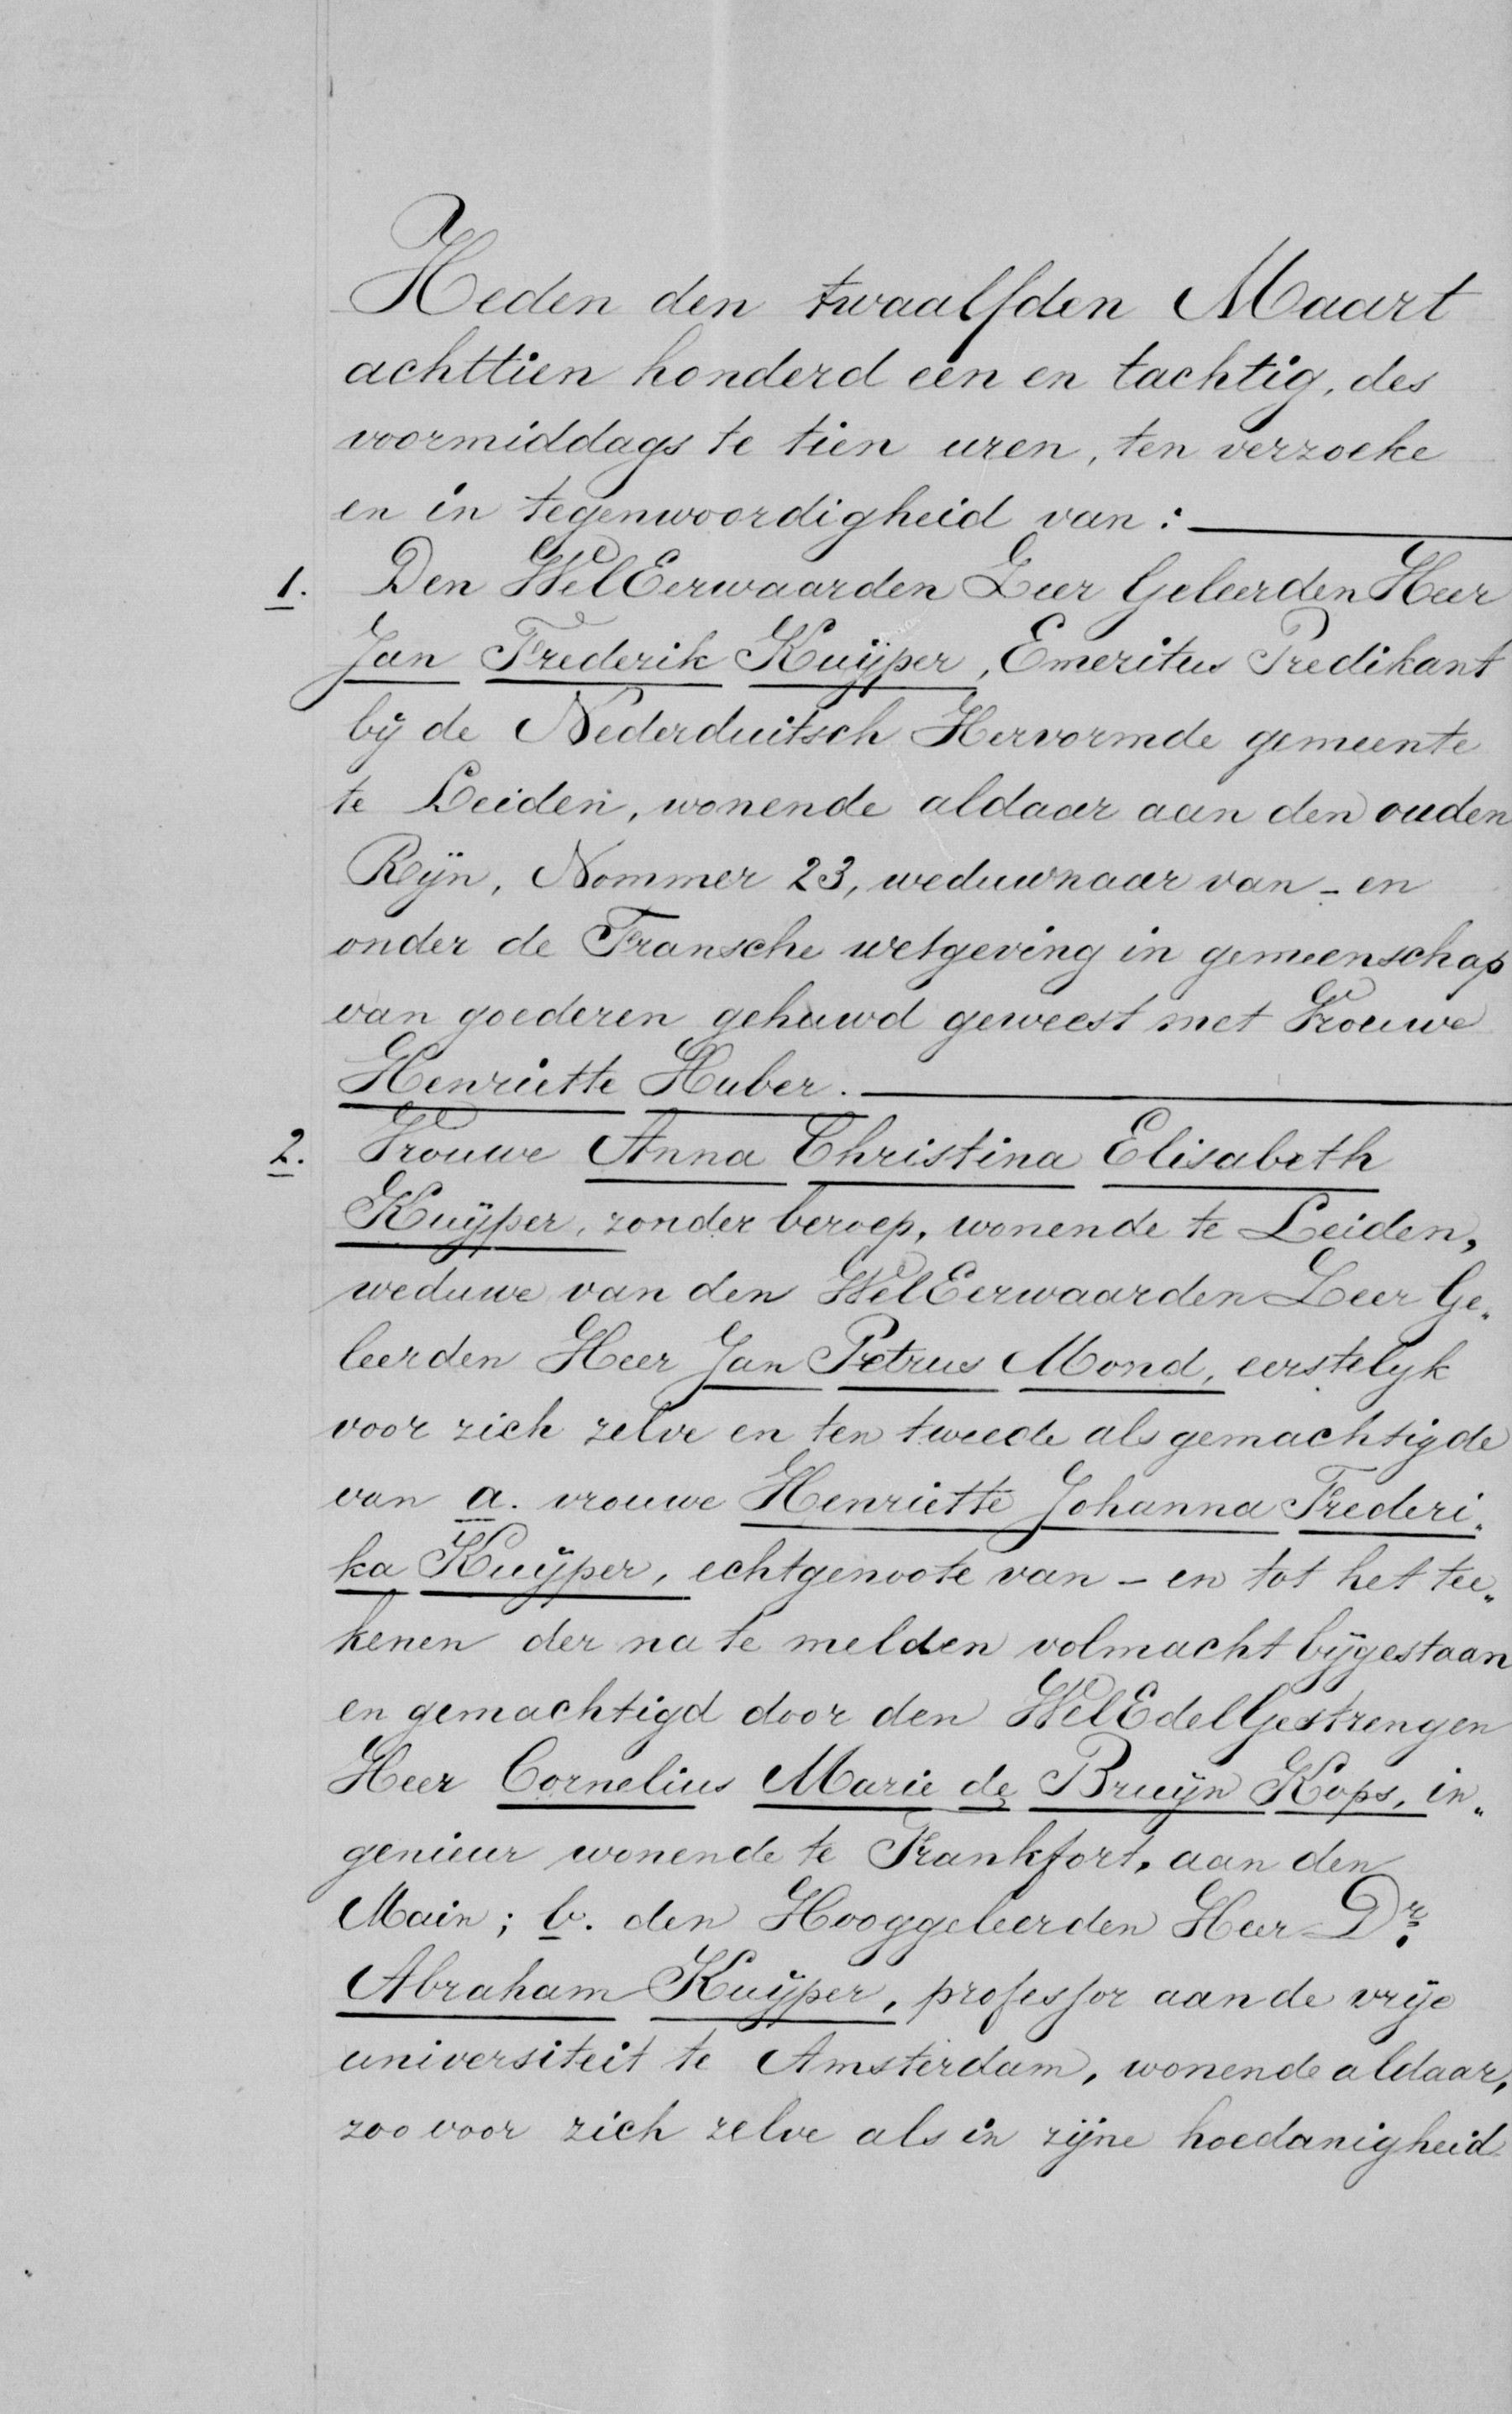 Heden den twaalfden Maart
achttien honderd een en tachtig, des
voormiddags te tien uren, ten verzoeke
en in tegenwoordigheid van:
1. Den WelEerwaarden Zeer Geleerden Heer
Jan Frederik Kuijper, Emeritus Predikant
bij de Nederduitsch Hervormde gemeente
te Leiden, wonende aldaar aan den ouden
Rijn, Nommer 23, weduwnaar van - en
onder de Fransche wetgeving in gemeenschap
van goederen gehuwd geweest met Vrouwe
Henriette Huber.
2. Vrouwe Anna Christina Elisabeth
Kuijper, zonder beroep, wonende te Leiden,
weduwe van den WelEerwaarden Zeer Ge„
leerden Heer Jan Petrus Mond, eerstelijk
voor zich zelve en ten tweede als gemachtigde
van a. vrouwe Henriette Johanna Frederi„
ka Kuijper, echtgenoote van - en tot het tee„
kenen der na te melden volmacht bijgestaan
en gemachtigd door den WelEdelGestrengen
Heer Cornelius Marie de Bruijn Kops, in„
genieur wonende te Frankfort, aan den
Main; b. den Hooggeleerden Heer Dr.
Abraham Kuijper, professor aan de vrije
universiteit te Amsterdam, wonende aldaar,
zoo voor zich zelve als in zijne hoedanigheid